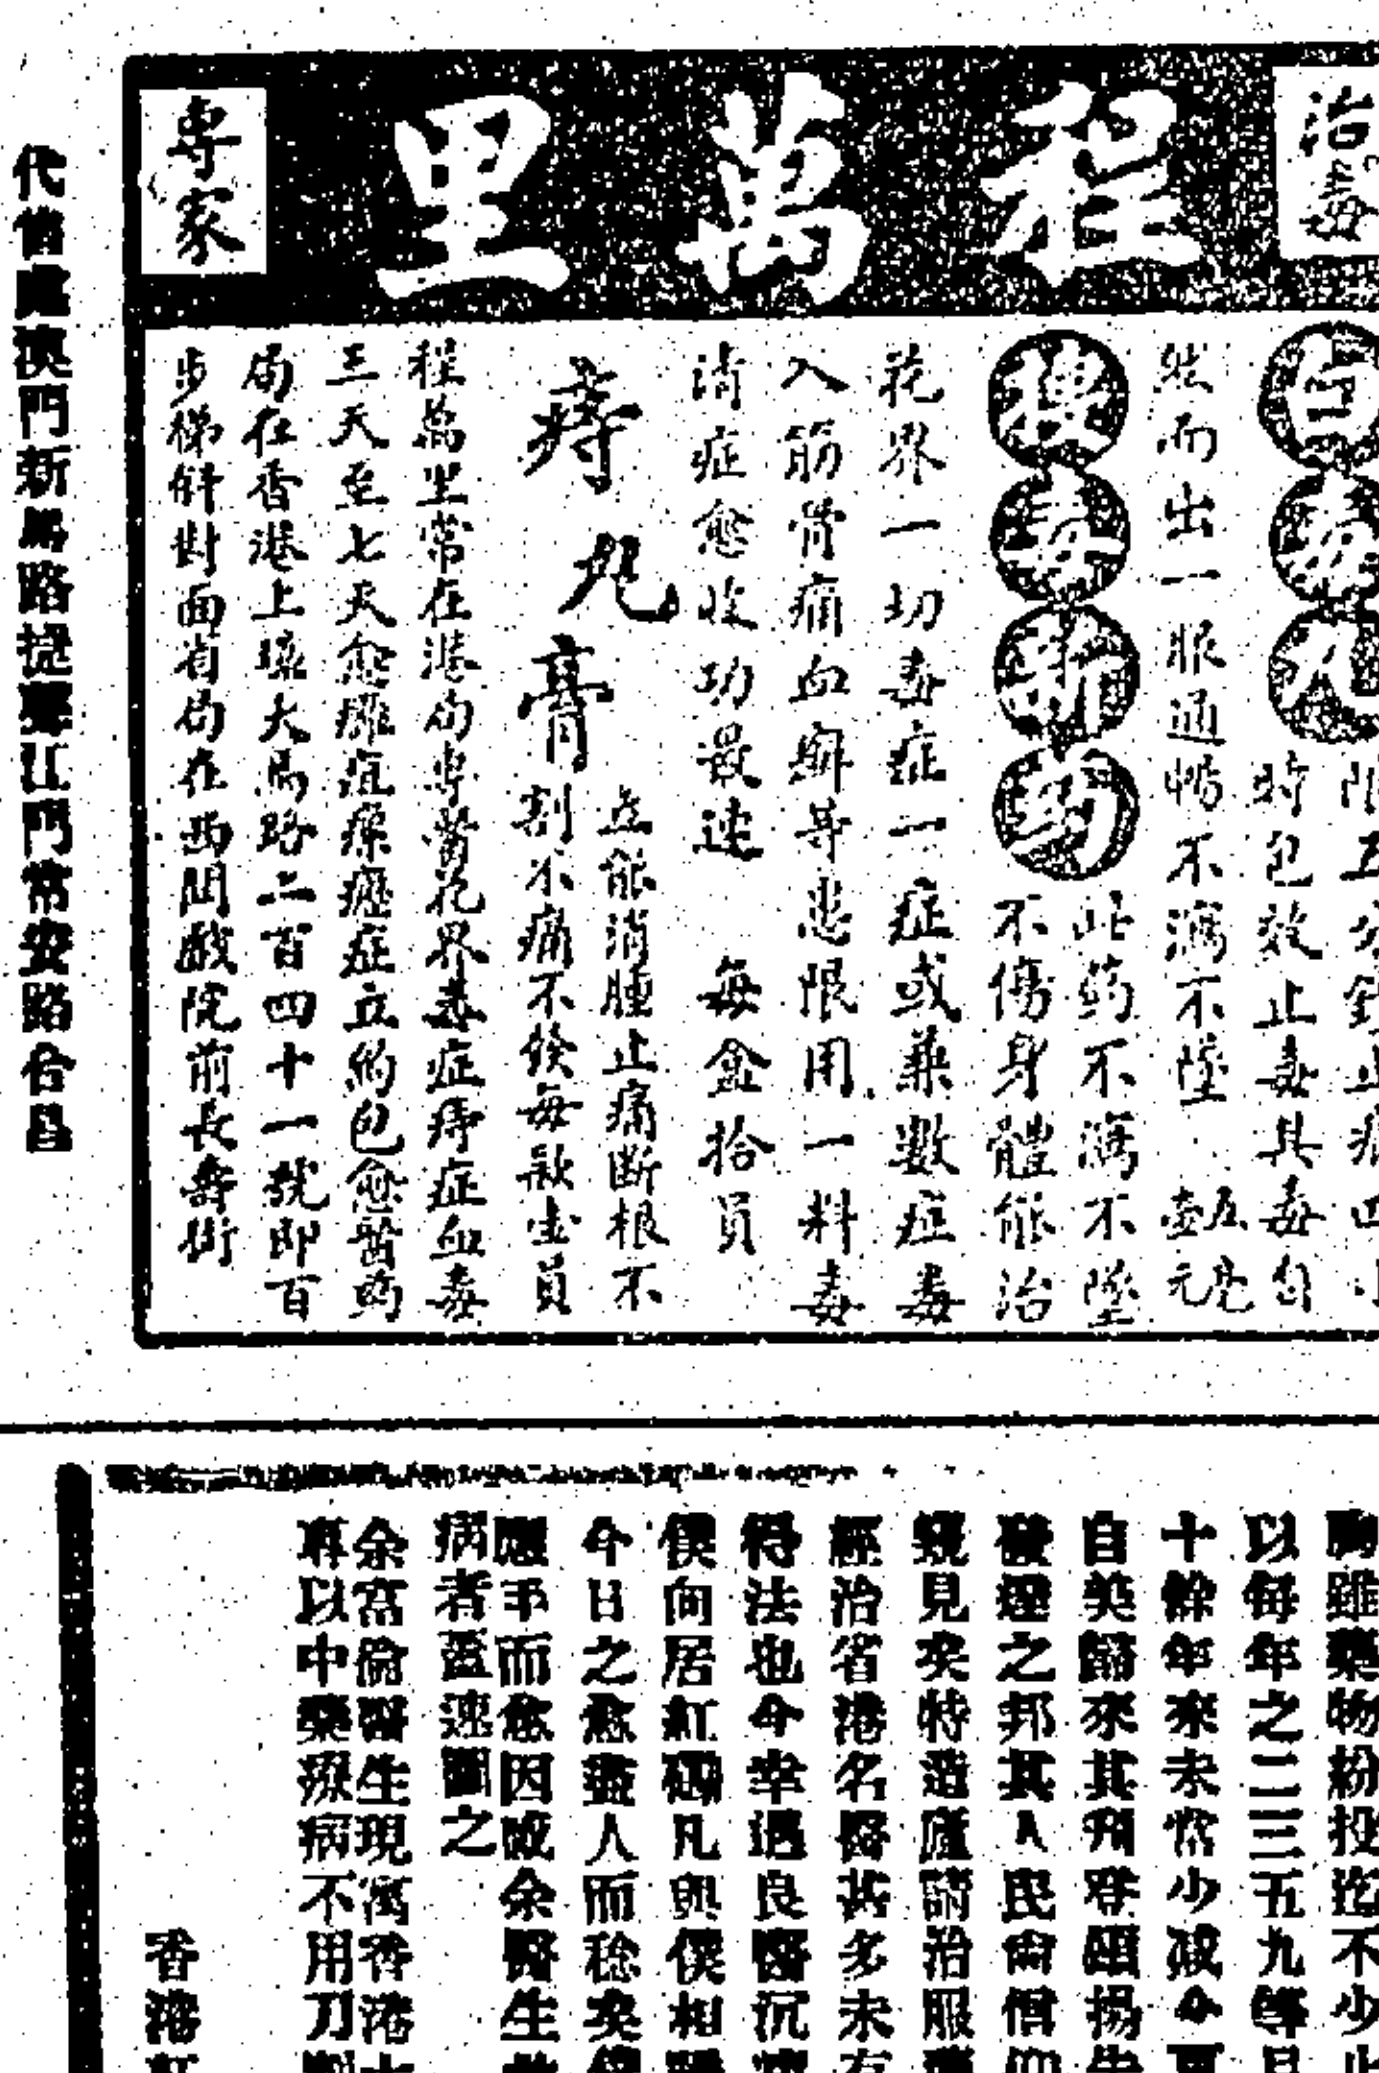 治毒
程萬里
專家
白濁丸
限五分鐘止痛四小
時包效止毒其毒自
然而出一服通暢不瀉不墜
五毫
壹元
梅毒新药
此药不瀉不墜
不傷身體能治
花界一切毒症一症或兼數症毒
入筋骨痛血癬等患限用一料毒
清症愈收功最速 每盒拾員
痔丸膏
立能消腫止痛断根不
割不痛不發每歀壹員
程萬里常在港局專醫花界毒症痔症血毒
三天至七天愈癰疽瘰癧症立約包愈醫药
局在香港上環大馬路二百四十一號即百
步梯斜對面省局在西關戲院前長壽街
代售處澳門新馬路提 江門常安路合昌
胸雖藥物紛投迄不少止
以每年之二三五九等月
十餘年來未常少 今夏
自美歸來其 登 揚先
之邦其人民尚僧仰
見矣特造廬請治服藥
經治省港名醫甚多未有
得法也今幸遇良醫沉
僕向居紅磡凡與僕相
今日之愈盡人而稔矣
應手而愈因 余醫生
病者盍速圖之
余 倫醫生現寓香港
專以中藥療病不用刀
香港紅